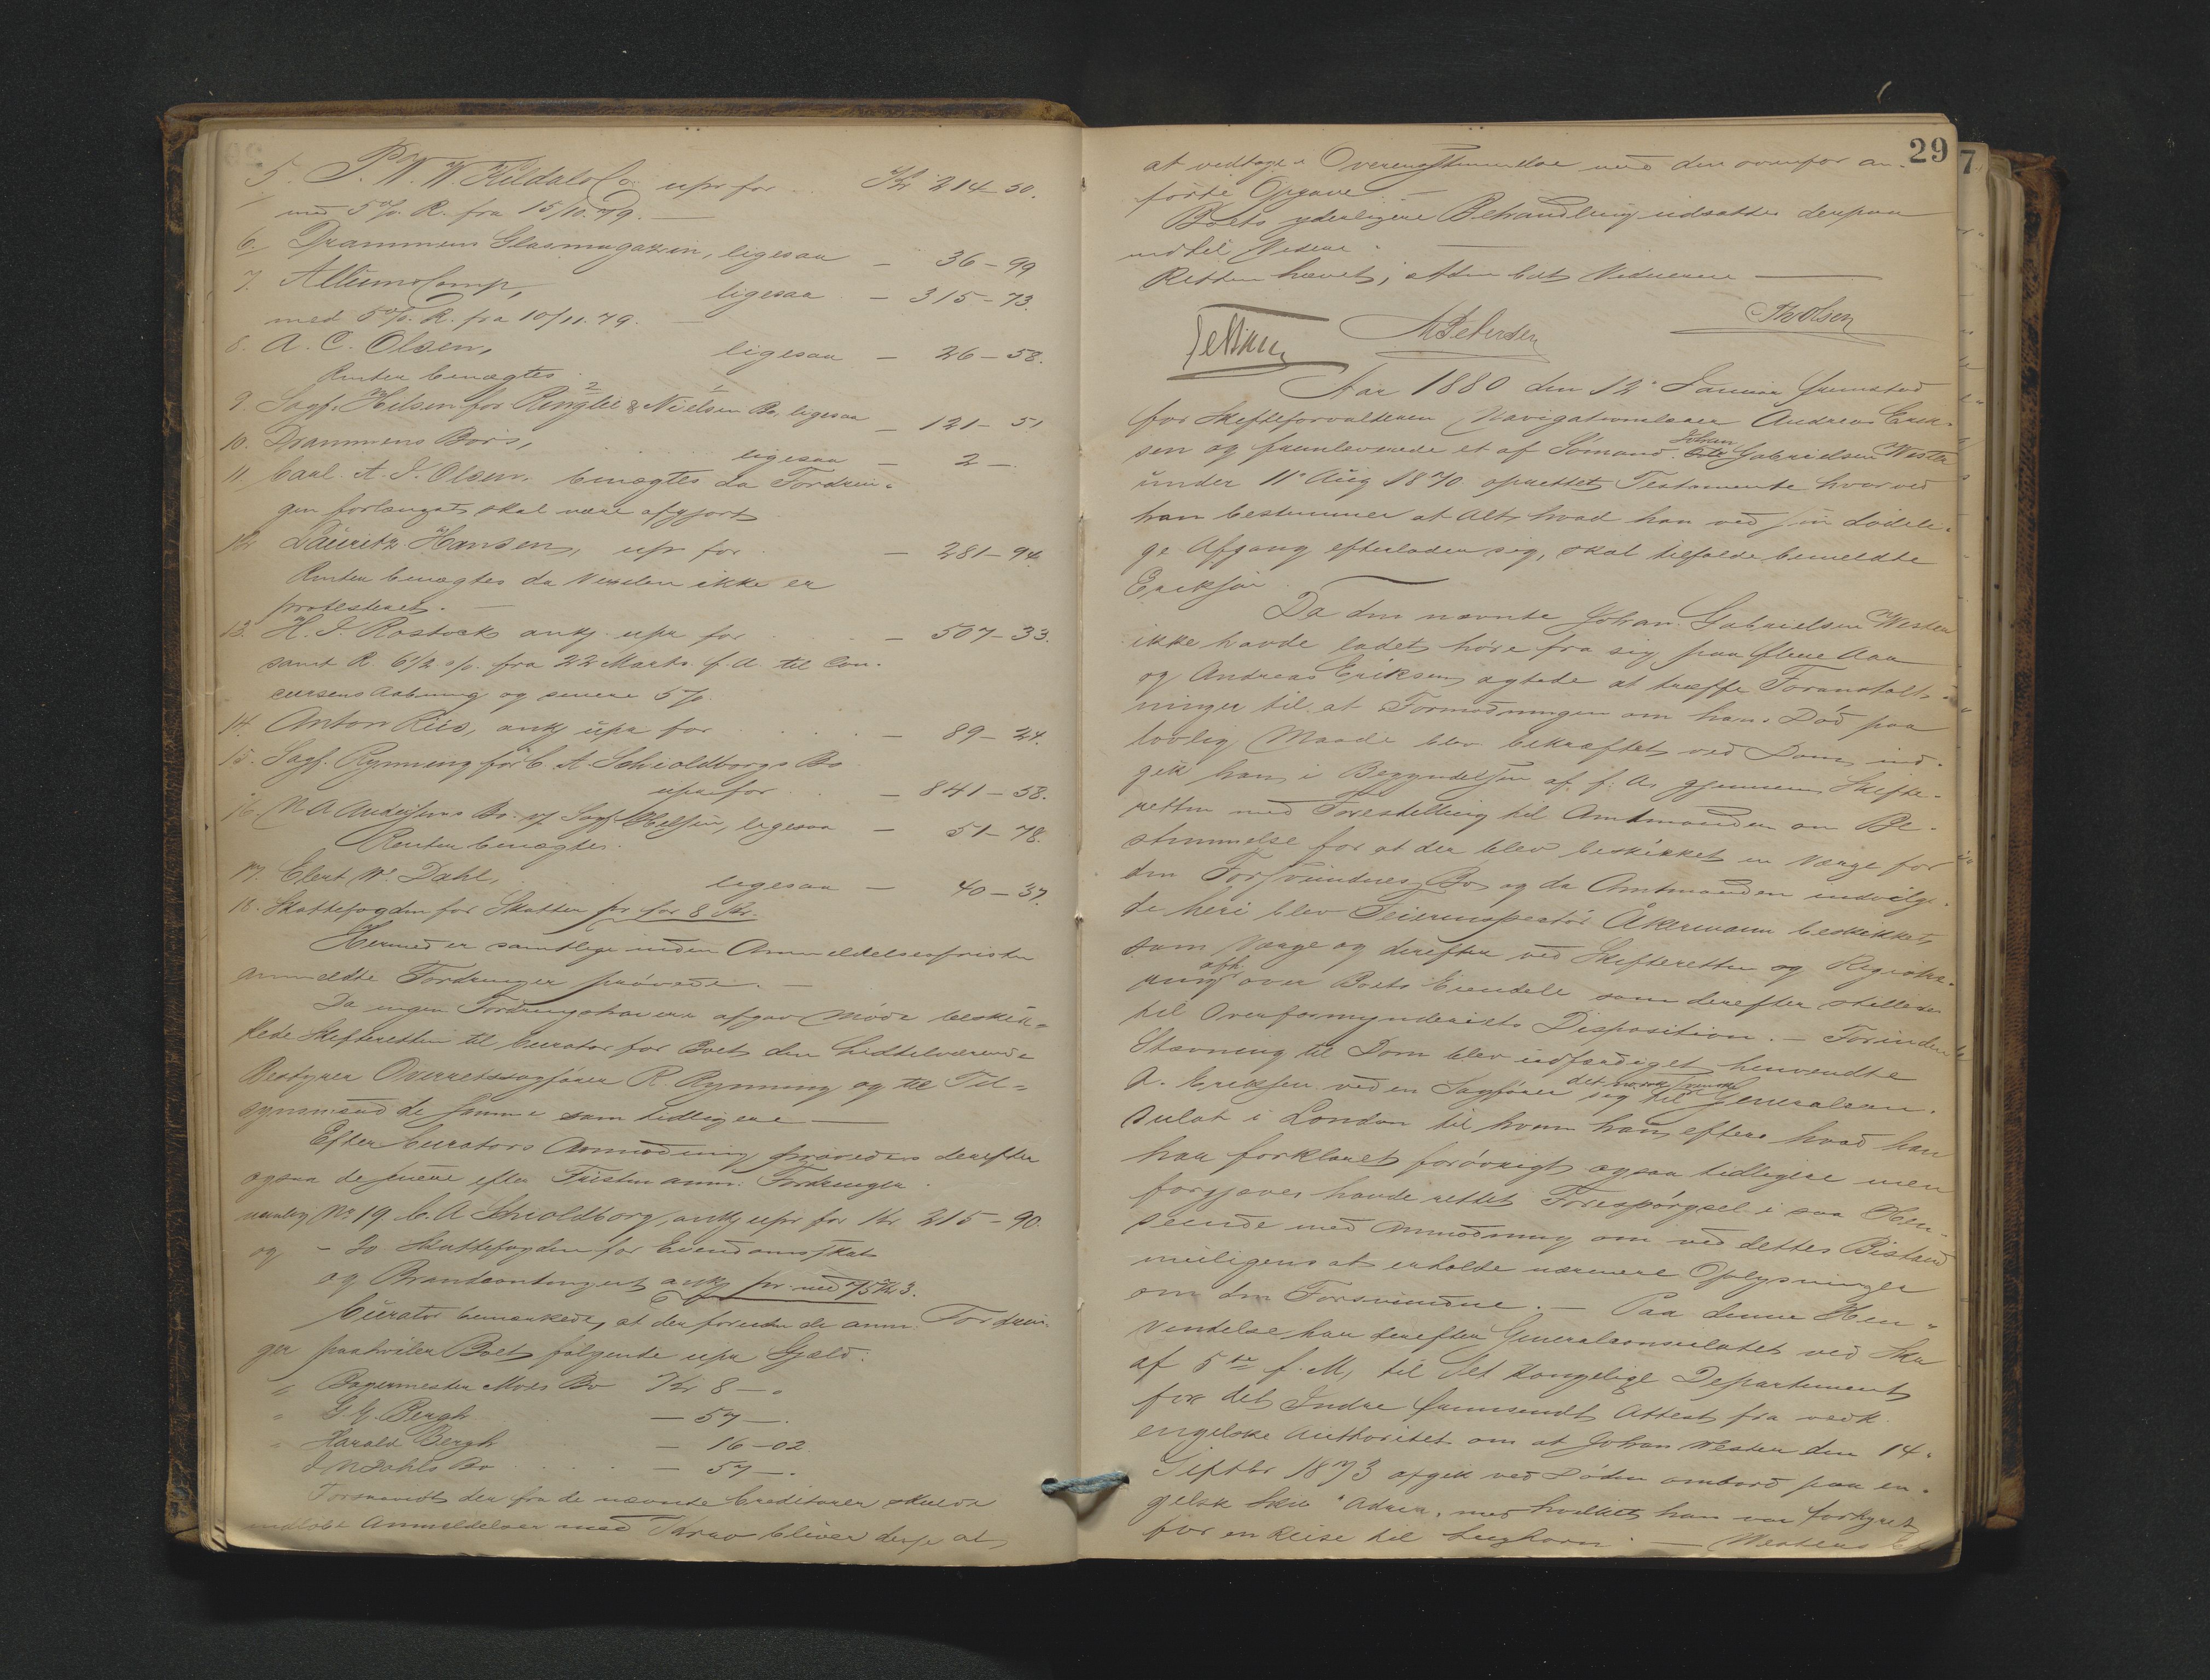 5. P. W. W. Kildal & Co. upr for Kr 214-50.
med 5 o/o. R. fra 15/10. 79. —
6. Drammens Glasmagazin, ligesaa — 36-99
7. Allum & Comp, ligesaa — 315-73.
med 5 o/o. R. fra 10/11. 79. —
8. A. C. Olsen, ligesaa — 26-58.
Renten benægtes.
9. Sagf. Hilsen for Ringlie & Nielsen Bo, ligesaa — 121-51
10. Drammens Børs, ligesaa — 2-.
11. Carl. A. J. Olsen, benægtes da Fordrin-
gen forlængst skal være afgjort
12 Lauritz Hansen, upr for — 281-94
Renten benægtes da Vexelen ikke er
protesteret. —
13. H. J. Rostock ank. upr for — 507-33.
samt R. 6 1/2 o/o. fra 22 Marts f. A. til Con-
cursens Aabning og senere 5 o/o.
14. Anton Riis, ank upr for — 89-24.
15. Sagf. Rynning for C. A. Schioldborgs Bo
upr for — 841-58.
16. N A Andersens Bo v/ Sagf. Hilsen, ligesaa — 51-78.
Renten benægtes.
17. Elert W. Dahl, ligesaa — 40-37.
18. Skattefogden for Skatter pr for 8 Kr.
Hermed er samtlige inden Anmeldelsesfristen
anmeldte Fordringer prøvede. —
Da ingen Fordringshavere afgav Møde beskik-
kede Skifteretten til Curator for Boet den hidtilværende
Bestyrer Overretssagfører R. Rynning og til Til-
synsmænd de samme som tidligere —
Efter Curators Anmodning prøvedes derefter
ogsaa de senere efter Fristen anm. Fordringer.
nemlig No 19 C. A Schioldborg, ank upr for Kr 215-90.
og - 20 Skattefogden for Eiendomsskat
og Brandcontingent ank pr. med
Curator bemærkede, at der foruden de anm. Fordrin-
ger paahviler Boet følgende upr Gjæld:
" Bagermester Moes Bo Kr 8-"
" G. G. Bergh — 57-.
" Harald Bergh — 16-02.
J N Dahls Bo — 57-.
Forsaavidt der fra de nævnte Creditorer skulde
indløbe Anmeldelser med Krav bliver disse at
29
at vedtage i Overensstemmelse med den ovenfor an-
førte Opgave —
Boets yderligere Behandling udsattes derpaa
indtil Videre. —
Retten hævet, Vidnerne —
M Pedersen
Th Olsen
Aar 1880 den 12te Januar fremstod
for Skifteforvalteren Navigationslærer Andreas Erik-
sen og fremleverede et af Sömand Johan Gabrielsen Westen
under 11te Aug 1870 oprettet Testamente hvorved
han bestemmer at Alt, hvad han ved sin dødeli-
ge Afgang efterlader sig, skal tilfalde bemeldte
Eriksen
Da den nævnte Johan Gabrielsen Westen
ikke havde ladet høre fra sig paa flere Aar
og Andreas Eriksen agtede at træffe Foranstalt-
ninger til at Formodningen om hans Død paa
lovlig Maade blev bekræftet ved Dom, ind-
gik han i Begyndelsen af f. A. gjennem Skifte-
retten med Forestilling til Amtmanden om Be-
stemmelse for at der blev beskikket en Værge for
den Forsvundnes Bo og da Amtmanden indvilge-
de heri blev Feierinspectör Åkermann beskikket
som Værge og derefter ved Skifteretten og Registre-
ring afh. over Boets Eiendele som derefter stilledes
til Overformynderiets Disposition. — Forinden
Stævning til Dom blev udfærdiget henvendte
A. Eriksen ved en Sagfører sig til det norsk svenske Generalcon-
sulat i London til hvem han, efter hvad han
har forklaret forøvrigt ogsaa tidligere men
forgjæves havde rettet Forespørgsel i saa Hen-
seende med Anmodning om ved dettes Bistand
muligens at erholde nærmere Oplysninger
om den Forsvundne. — Paa denne Hen-
vendelse har derefter Generalconsulatet ved Skr
af 5te f. M, til det Kongelige Departement
for det Indre fremsendt Attest fra vedk
engelske Authoritet om at Johan Westen den 14.
Septbr 1873 afgik ved Døden ombord paa en-
gelsk Skib "Adria, med hvilket han var forhyret
for en Reise til Leghorn. — Westens